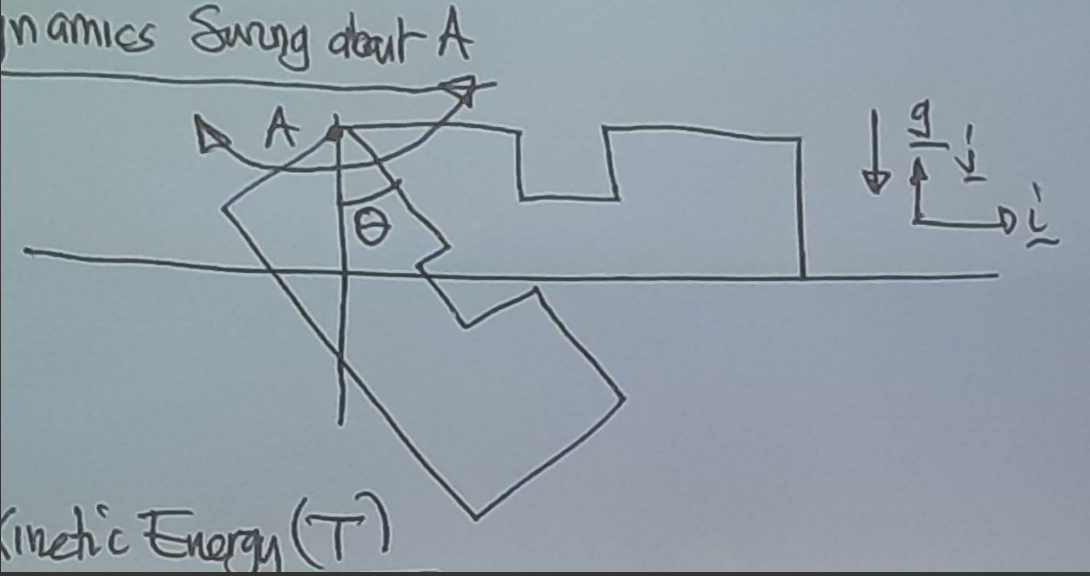 namics Swing about A
A
θ
g
j
i
Kinetic Energy (T)